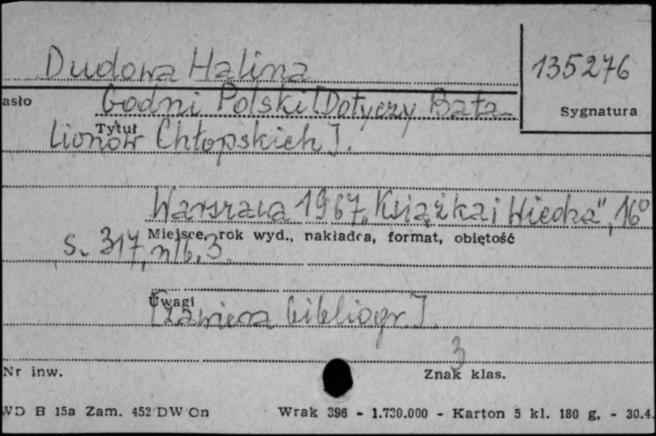 Dudowa Halina
135276
asło
Godni Polski [Dotyczy Bata-
Sygnatura
Tytuł
lionów Chłopskich].
Warszawa 1967, „Książka i Wiedza", 16°
Miejsce, rok wyd., nakładca, format, objętość
s. 317, nlb. 3.
Uwagi
[zawiera bibliogr.].
3
Nr inw.
Znak klas.
WD B 15a Zam. 452 DW On Wrak 396 - 1.730.000 - Karton 5 kl. 180 g. - 30.4.